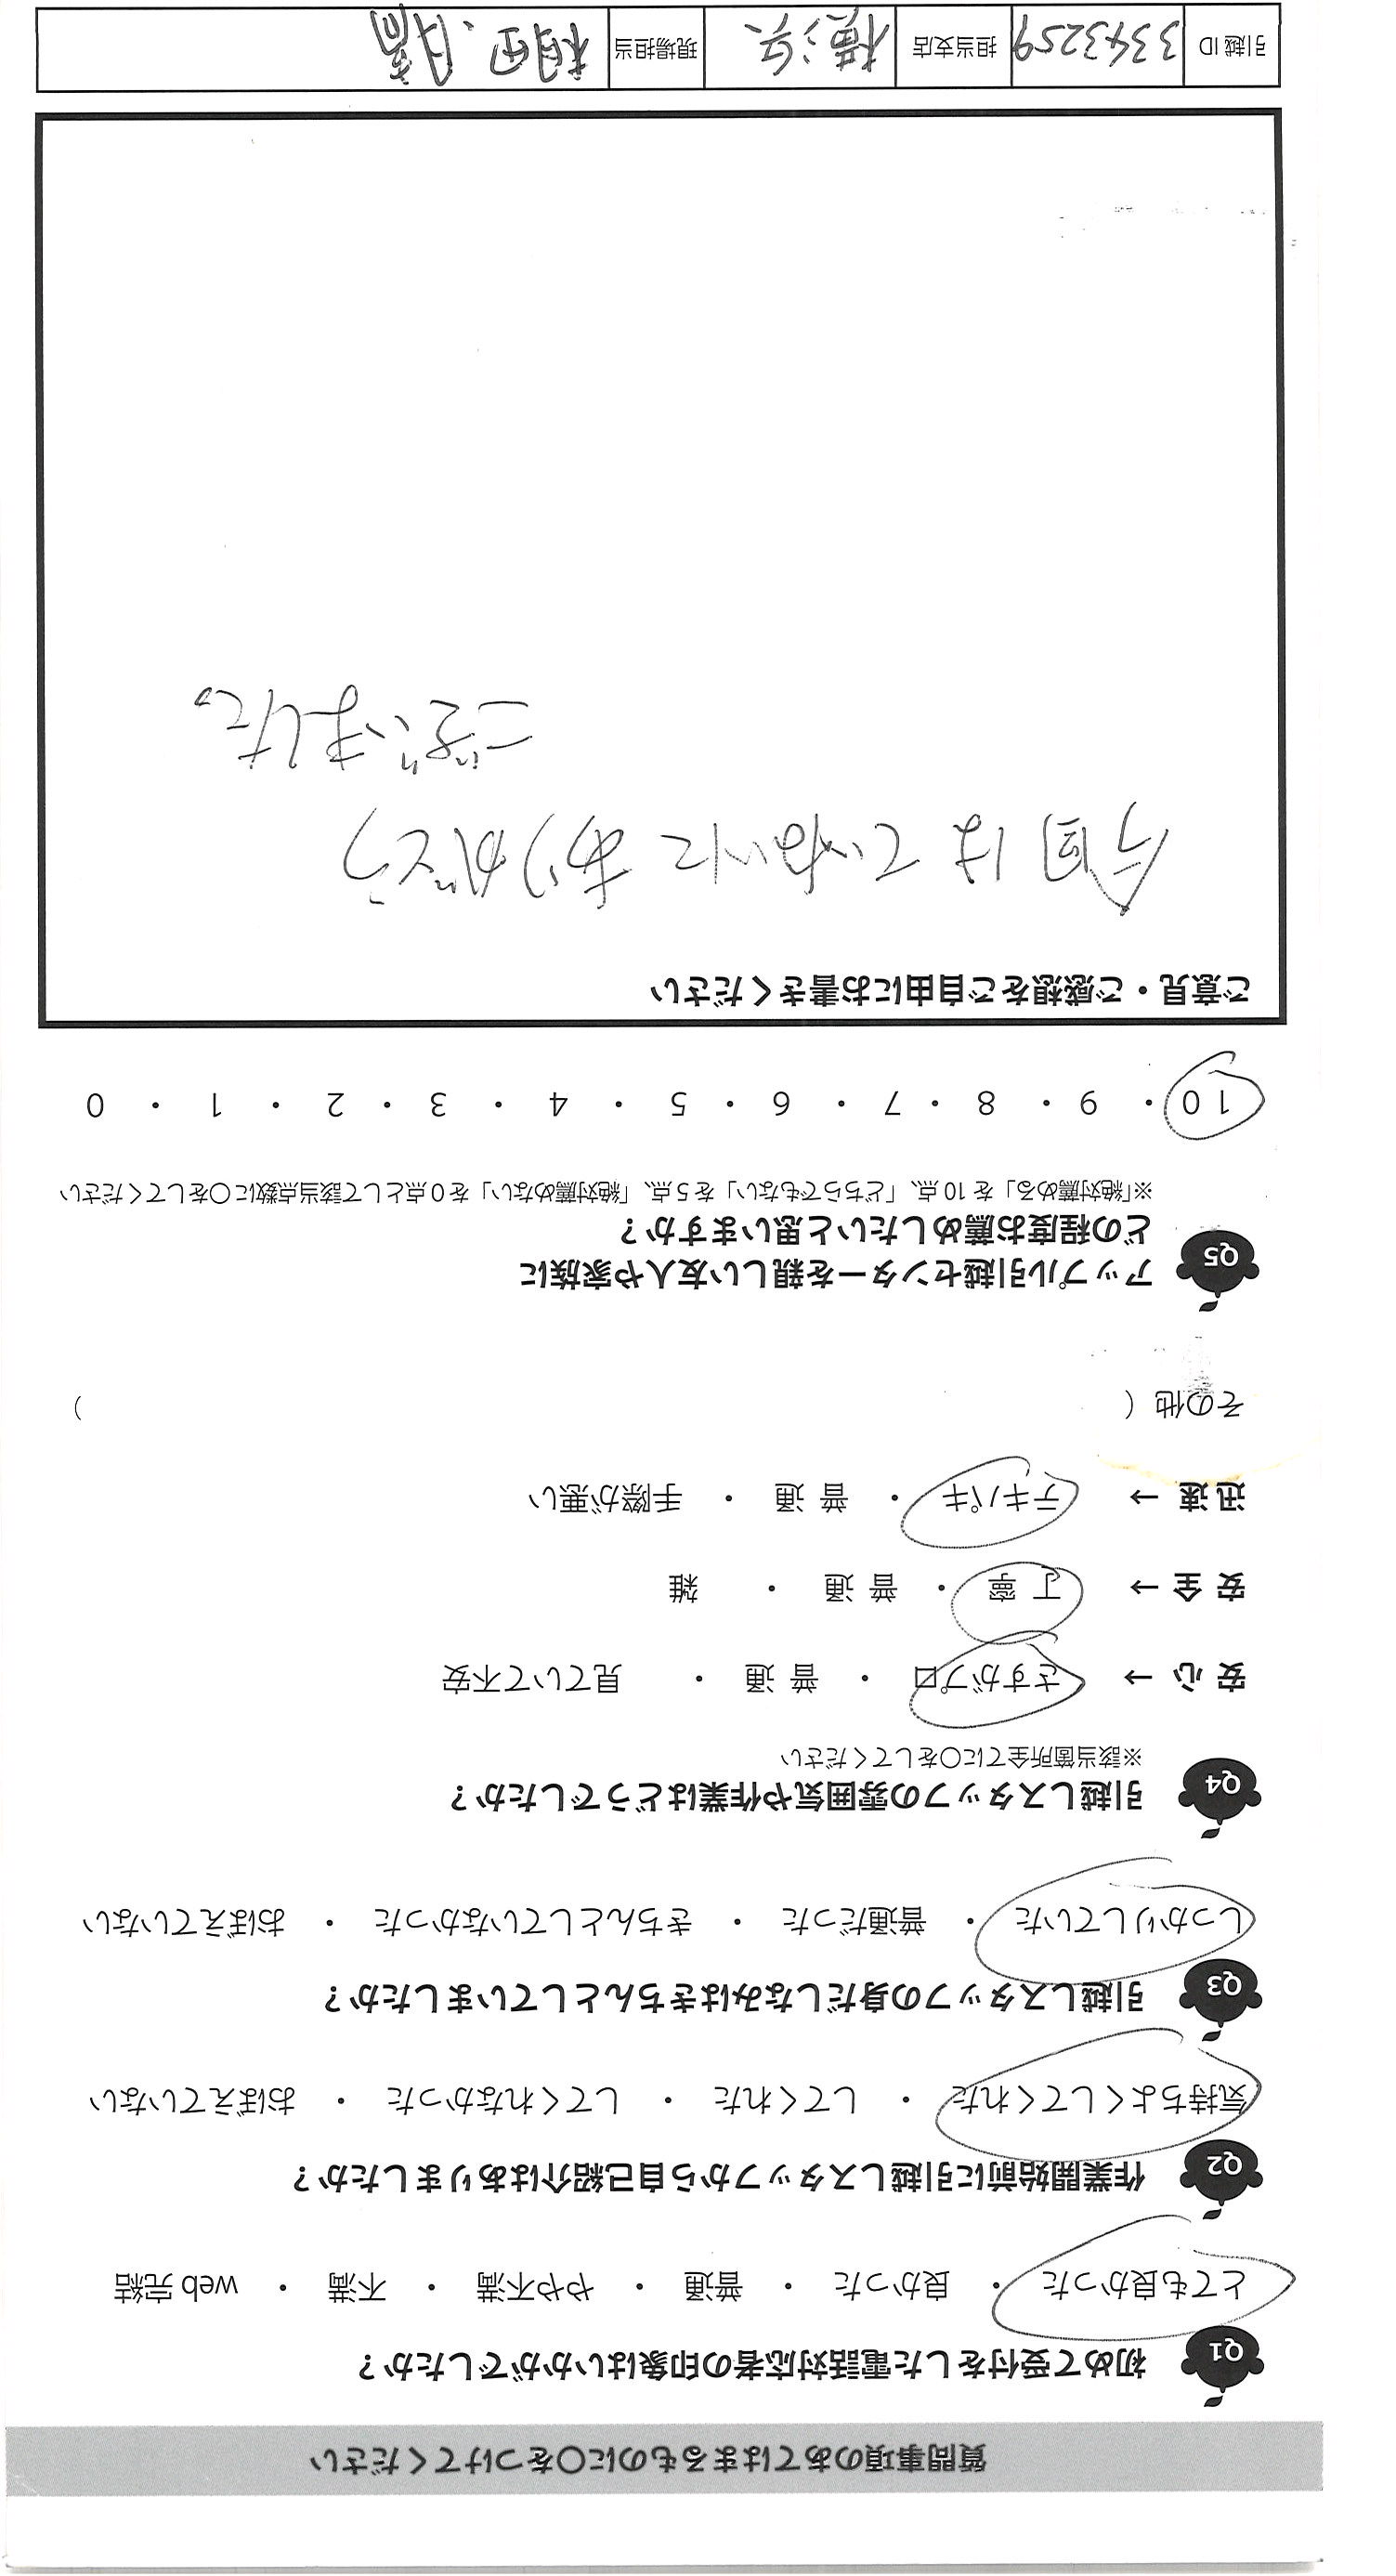 質問事項のあてはまるものに○をつけてください
Q1 初めて受付をした電話対応者の印象はいかがでしたか?
とても良かった ・ 良かった ・ 普通 ・ やや不満 ・ 不満 ・ web 完結
Q2 作業開始前に引越しスタッフから自己紹介はありましたか?
気持ちよくしてくれた ・ してくれた ・ してくれなかった ・ おぼえていない
Q3 引越しスタッフの身だしなみはきちんとしていましたか?
しっかりしていた ・ 普通だった ・ きちんとしていなかった ・ おぼえていない
Q4 引越しスタッフの雰囲気や作業はどうでしたか?
※該当箇所全てに○をしてください
安心 → さすがプロ ・ 普通 ・ 見ていて不安
安全 → 丁寧 ・ 普通 ・ 雑
迅速 → テキパキ ・ 普通 ・ 手際が悪い
その他 ( )
Q5 アップル引越センターを親しい友人や家族に
どの程度お薦めしたいと思いますか?
※「絶対薦める」を 10 点、「どちらでもない」を 5 点、「絶対薦めない」を 0 点として該当点数に○をしてください
10 ・ 9 ・ 8 ・ 7 ・ 6 ・ 5 ・ 4 ・ 3 ・ 2 ・ 1 ・ 0
ご意見・ご感想をご自由にお書きください
今回はていねいにありがとう
ございました。
引越 ID 3343259 担当支店 横浜 現場担当 相田、